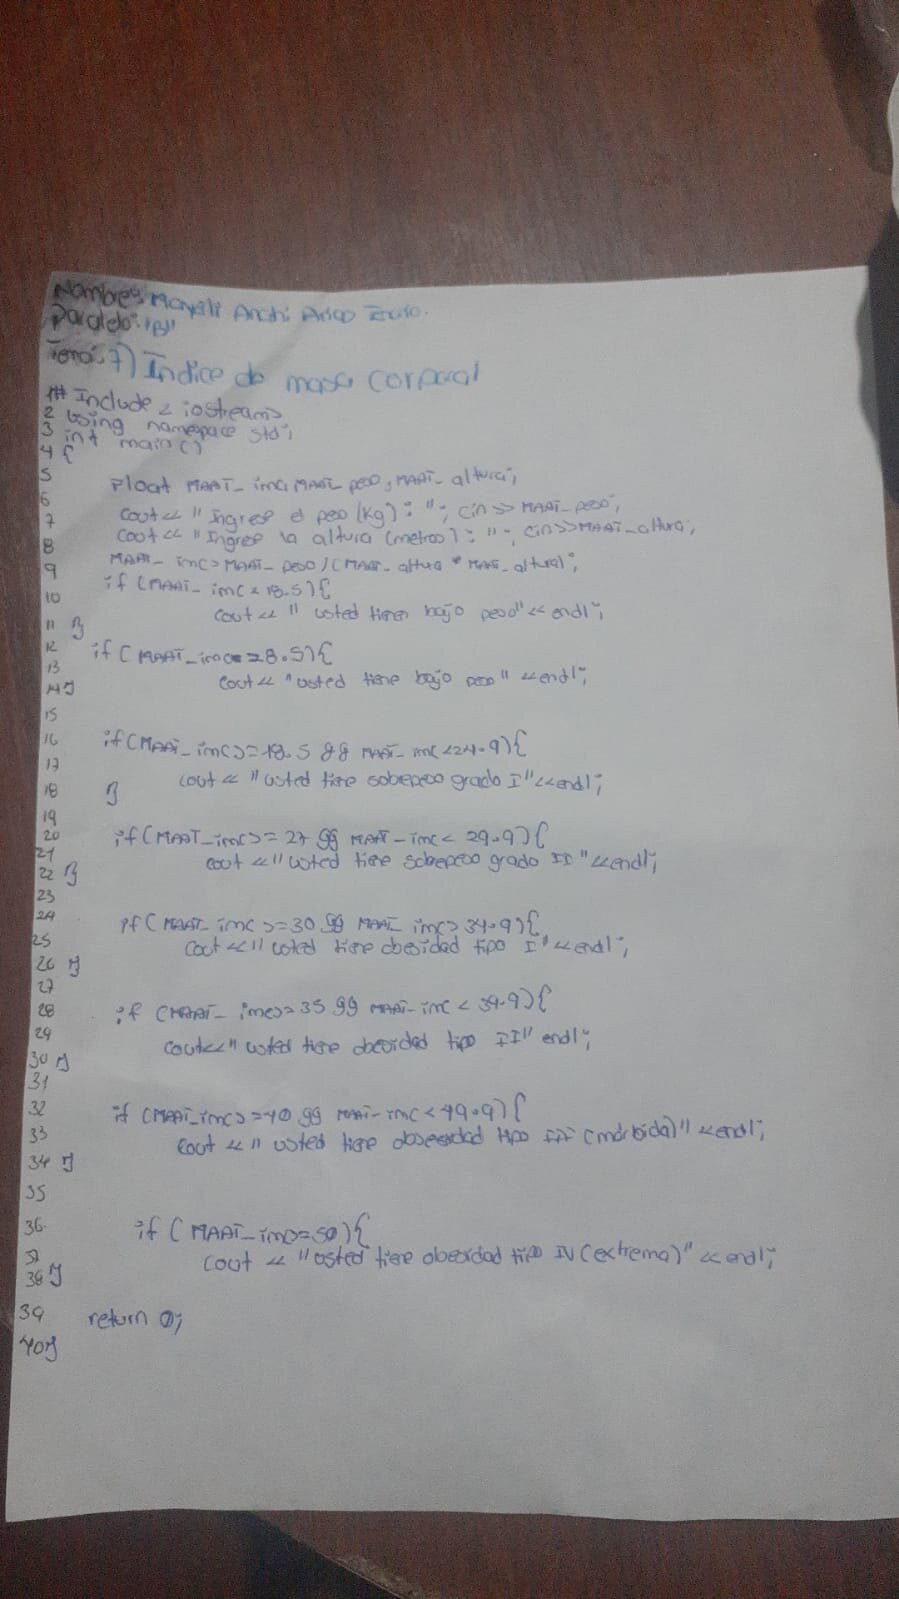 Nombres: Mayeli Anahi Arico
Paralelo: "B"
Tema: 7) Índice de masa corporal
1 # Include < iostream>
2 Using namespace std;
3 int main ()
4 {
5
6 Float MAAI_ imc, MAAI_ peso, MAAI_ altura;
7 cout << "Ingrese el peso (Kg): "; cin >> MAAI_peso;
8 cout << "Ingrese la altura (metros): "; cin>>MAAI_altura;
9 MAAI_ imc= MAAI_ peso / (MAAI_ altura * MAAI_altura);
10 if (MAAI_ imc < 18.5) {
cout << " usted tiene bajo peso" << endl;
11 }
12 if ( MAAI_imc 8.5) {
13 cout << "usted tiene bajo peso" << endl;
14 }
15
16 if (MAAI_ imc >= 18.5 && MAAI_ imc <24.9) {
17 cout << "usted tiene sobrepeso grado I" <<endl;
18 }
19
20 if (MAAI_imc >= 27 && MAAI_imc < 29.9) {
21 cout << "usted tiene sobrepeso grado II" <<endl;
22 }
23
24 if ( MAAI_ imc >=30 && MAAI_ imc > 34.9) {
25 cout << "usted tiene obesidad tipo I" <<endl;
26 }
27
28 if (MAAI_ imc >= 35 && MAAI_imc < 39.9) {
29 cout<<" usted tiene obesidad tipo II" endl;
30 }
31
32 if (MAAI_imc >=40 && MAAI_imc < 49.9) {
33 cout << " usted tiene tipo III (mórbida)" <<endl;
34 }
35
36 if ( MAAI_imc >= 50) {
37 cout << "usted tiene obesidad tipo IV (extrema)" << endl;
38 }
39 return 0;
40 }